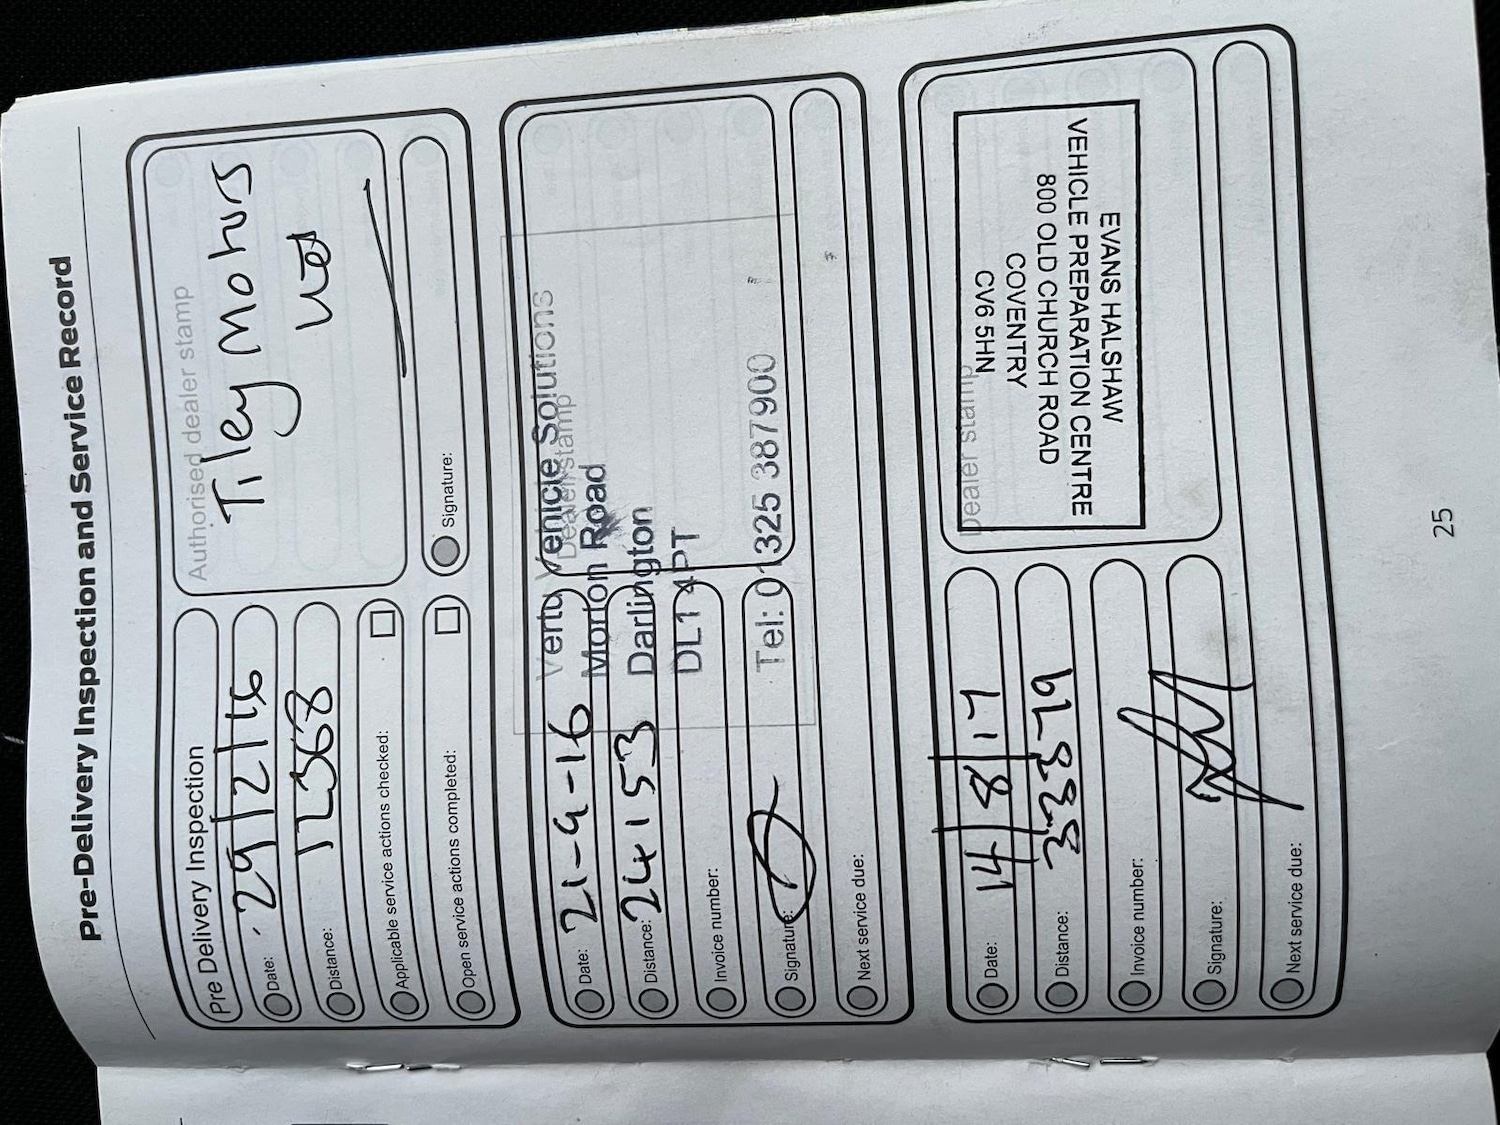 Pre-Delivery Inspection and Service Record
Pre Delivery Inspection
Date: 29/2/16
Distance: 12368
Applicable service actions checked:
Open service actions completed:
Authorised dealer stamp
Tiley Motors
Signature:
Date: 21-9-16
Distance: 24153
Invoice number:
Signature:
Next service due:
Dealer stamp
Vertu Vehicle Solutions
Morton Road
Darlington
DL1 4PT
Tel: 01325 387900
Date: 14/8/17
Distance: 33379
Invoice number:
Signature:
Next service due:
Dealer stamp
EVANS HALSHAW
VEHICLE PREPARATION CENTRE
800 OLD CHURCH ROAD
COVENTRY
CV6 5HN
25